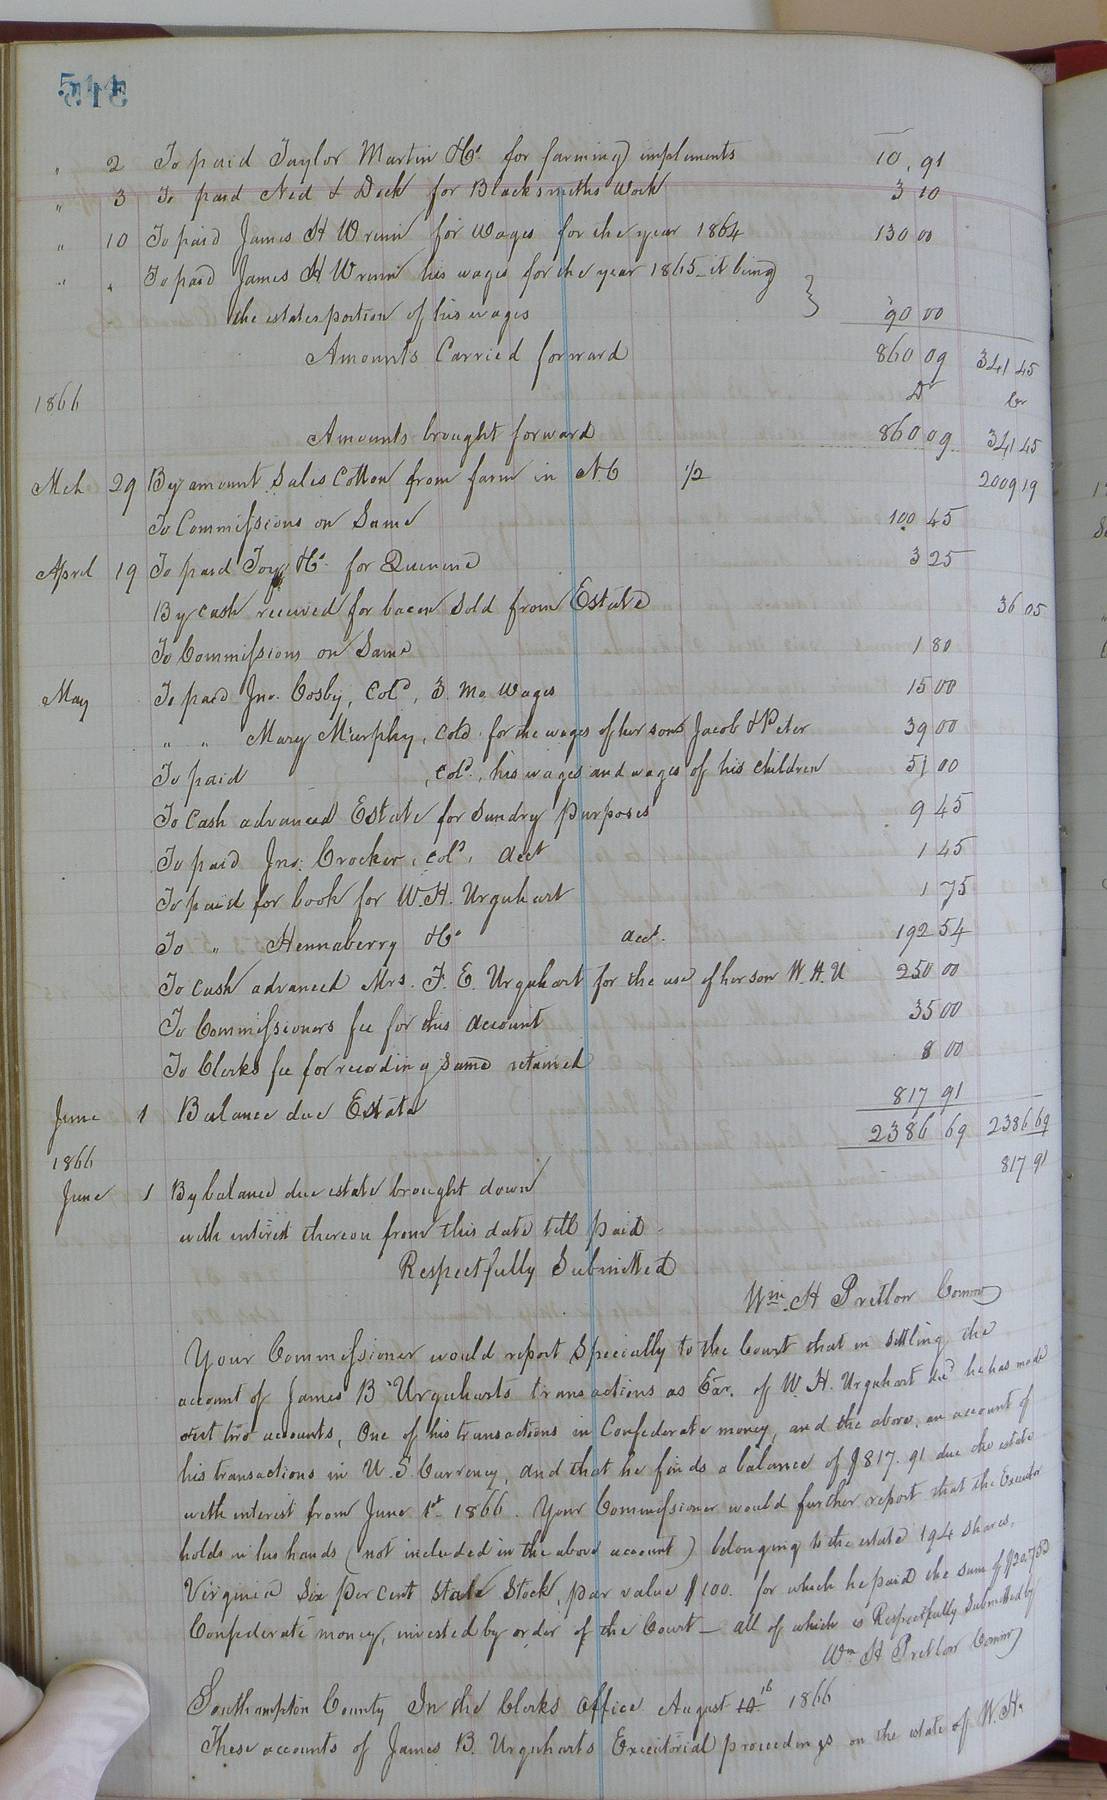 514
" 2 To paid Taylor Martin &Co. for farming implements 10.91
" 3 To paid Ned & Dick for Blacksmiths work 3 10
" 10 To paid James H Wrenn for Wages for the year 1864 130 00
" " To paid James H Wrenn his wages for the year 1865 - it being
the estates portion of his wages 90 00
Amounts Carried forward 860 09 341 45
1866 Dr Cr
Amounts brought forward 860 09 341 45
Mch 29 By amount Sales Cotton from farm in NC 1/2 2009 19
To Commissions on Same 100 45
April 19 To paid &Co. for Quinine 3 25
By cash received for bacon sold from Estate 36 05
To Commissions on Same 1 80
May To paid Jno. Cosby, Cold, 3 Mo Wages 15 00
" " Mary Murphy, Cold for the wages of her sons Jacob & Peter 39 00
To paid , Cold, his wages and wages of his children 51 00
To Cash advanced Estate for Sundry purposes 9 45
To paid Jno. Crocker, cold, acct 1 45
To paid for book for W.H. Urquhart 1 75
To " Hennaberry &Co acct. 192 54
To Cash advanced Mrs. F. E. Urquhart for the use of her son W.H.U 250 00
To Commissioners fee for this account 35 00
To Clerks fee for recording Same retained 8 00
June 1 Balance due Estate 817 91
2386 69 2386 69
1866 817 91
June 1 By balance due estate brought down
with interest thereon from this date till paid -
Respectfully Submitted
Wm. H Pretlow Commr
Your Commissioner would report Specially to the Court that in settling the
account of James B Urquharts transactions as Exr. of W. H. Urquhart decd he has made
out two accounts, One of his transactions in Confederate money, and the above, an account of
his transactions in U.S. Currency, and that he finds a balance of $817.91 due the estate
with interest from June 1st 1866. Your Commissioner would further report that the Executor
holds in his hands (not included in the above account) belonging to the estate 194 shares,
Virginia Six per cent State Stock, par value $100. for which he paid the sum of
Confederate money, invested by order of the Court - all of which is Respectfully Submitted by
Wm H Pretlow Commr
Southampton County In the Clerks office August 16 1866
These accounts of James B. Urquharts Executorial proceedings on the estate of W. H.